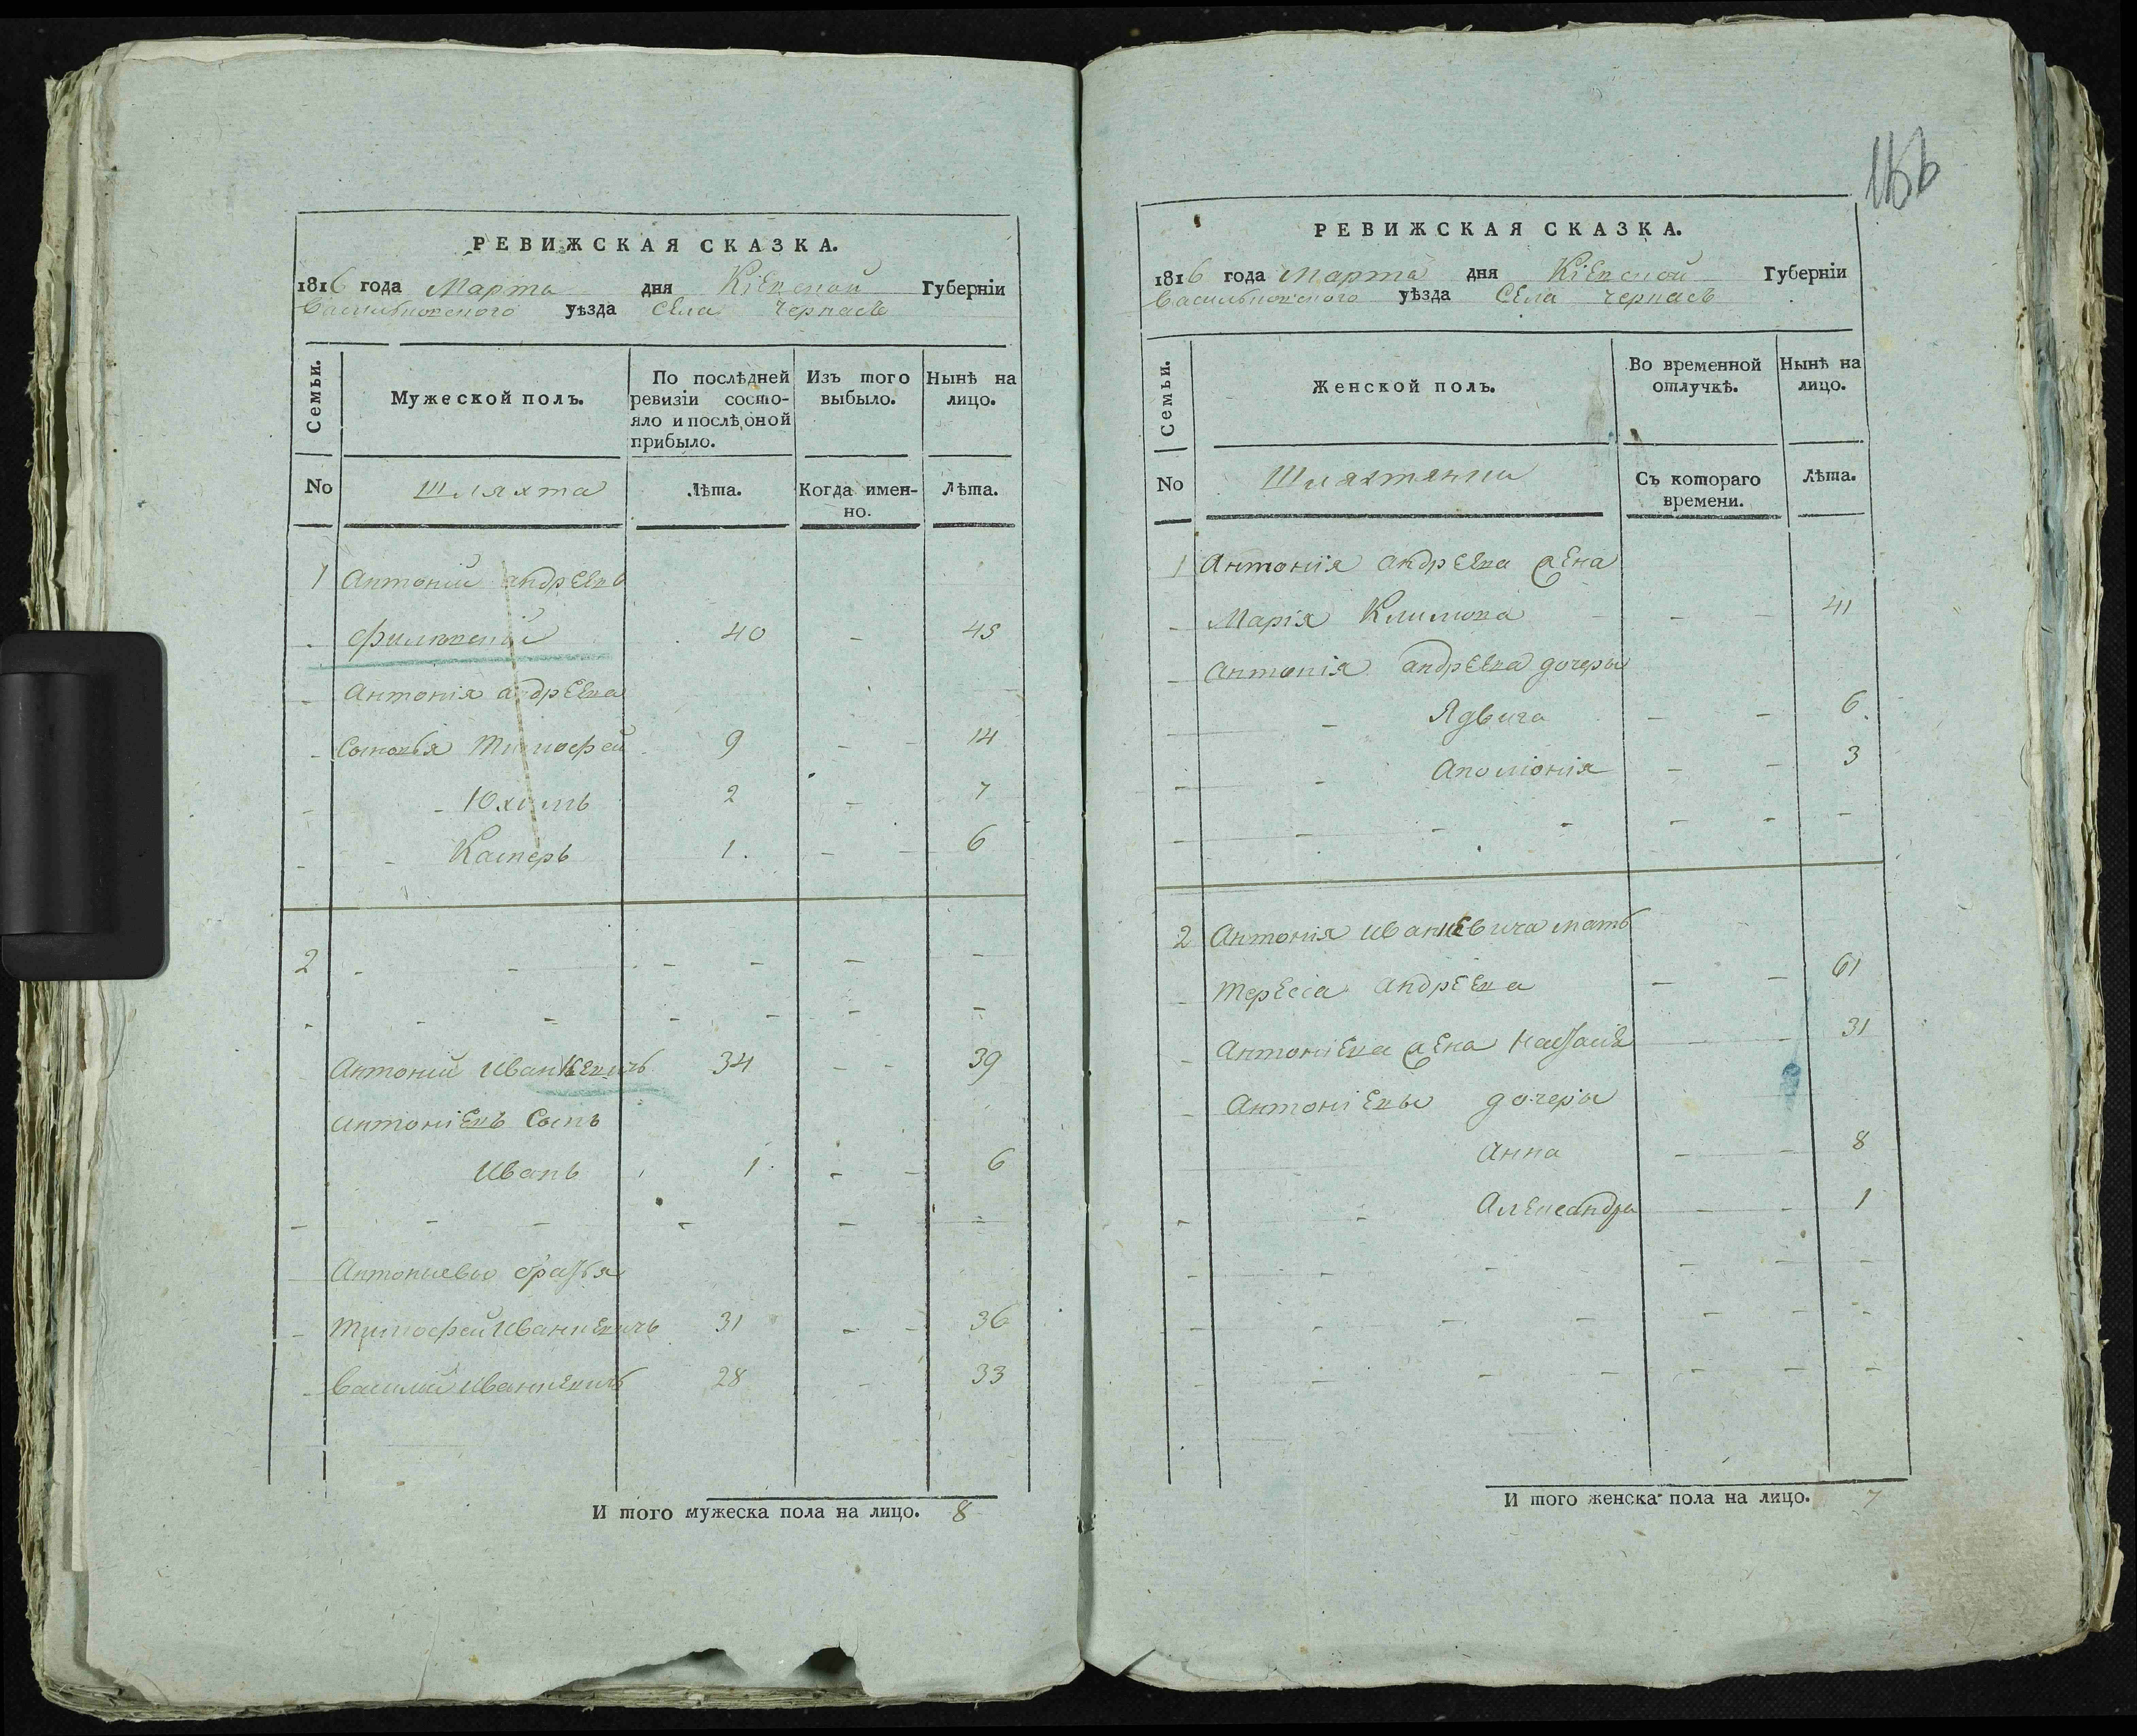 166
РЕВИЖСКАЯ СКАЗКА.
1816 года Марта дня Кіевской Губерніи
Васильковского уѣзда Села Черкасъ
Семьи.
Мужеской полъ.
По послѣдней ревизіи состо-
яло и послѣ оной
прибыло.
Изъ того
выбыло.
Нынѣ на
лицо.
No
Шляхта
Лѣта.
Когда имен-
но.
Лѣта.
1 Антоній андрѣевъ
- 40 - 45
Антонія андреева
Сыновья Тимофей 9 - 14
Юхимъ 2 - 7
Касперъ 1. - 6
2
Антоній Иванкевичъ 34 - - 39
антоніевъ Сынъ
Иванъ 1. - - 6
Антониевы братья
Тимофей Иванкевичъ 31 - - 36
Василий Иванкевичъ 28 - 33
И того мужеска пола на лицо. 8
РЕВИЖСКАЯ СКАЗКА.
1816 года Марта дня Кіевской Губерніи
Васильковского уѣзда Села Черкасъ
Семьи.
Женской полъ.
Во временной
отлучкѣ.
Нынѣ на
лицо.
No
Шляхтянки
Съ котораго
времени.
Лѣта.
1 Антонія андреева жена
Марія Климова - - 41
Антонія андреева дочеры
- Ядвига - - 6.
- Аполіонія - - 3
2 Антонія иванкевича мать
Терессія андреева - - 61
Антониева жена Наталія - 31
Антоніевы дочеры
Анна - - 8
- Александра - - 1
И того женска пола на лицо. 7